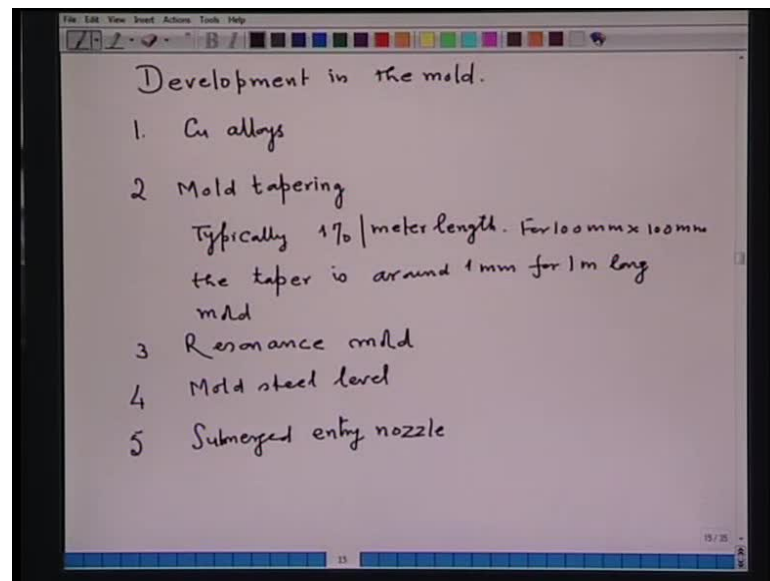 File Edit View Insert Actions Tools Help
Development in the mold.
1. Cu alloys
2 Mold tapering
Typically 1% / meter length. For 100mm x 100mm
the taper is around 1 mm for 1m long
mold
3 Resonance mold
4 Mold steel level
5 Submerged entry nozzle
15/35
15